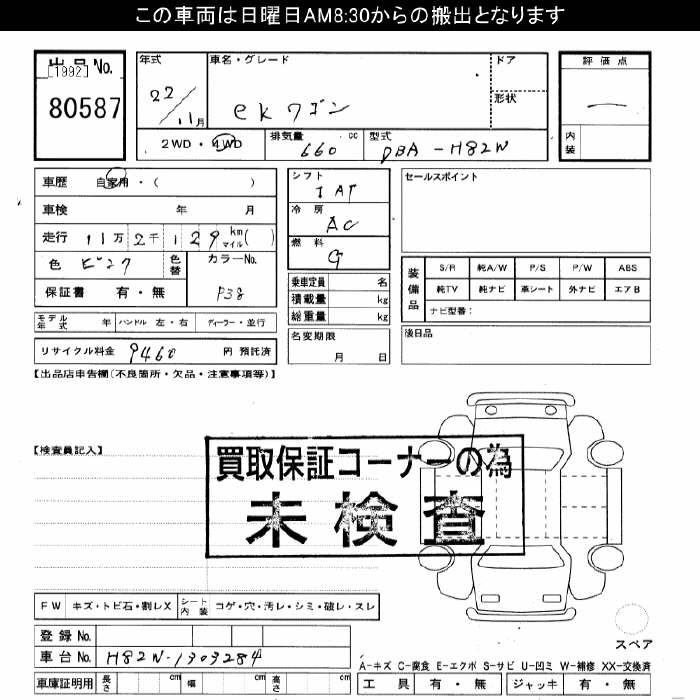 この車両は日曜日AM8:30からの搬出となります
出品No.
[1992]
80587
年式
22/11月
車名・グレード
ekワゴン
ドア
形状
評価点
内装
2WD・4WD
排気量
660 cc
型式
DBA-H82W
車歴 自家用・( )
車検 年 月
走行 11万2千129km(マイル)
色 ピンク
色替
カラーNo.
P38
保証書 有・無
シフト
IAT
冷房
AC
燃料
G
乗車定員 名
積載量 kg
総重量 kg
セールスポイント
装備品
S/R 純A/W P/S P/W ABS
純TV 純ナビ 革シート 外ナビ エアB
ナビ型番:
モデル年式 年 ハンドル 左・右 ディーラー・並行
名変期限
月 日
後日品
リサイクル料金 9460 円 預託済
【出品店申告欄(不良箇所・欠品・注意事項等)】
【検査員記入】
買取保証コーナーの為
未検査
FW キズ・トビ石・割レX シート内装 コゲ・穴・汚レ・シミ・破レ・スレ
スペア
登録No.
車台No. H82W-1303284
A-キズ C-腐食 E-エクボ S-サビ U-凹ミ W-補修 XX-交換済
車庫証明用 長さ cm 幅 cm 高さ cm
工具 有・無 ジャッキ 有・無